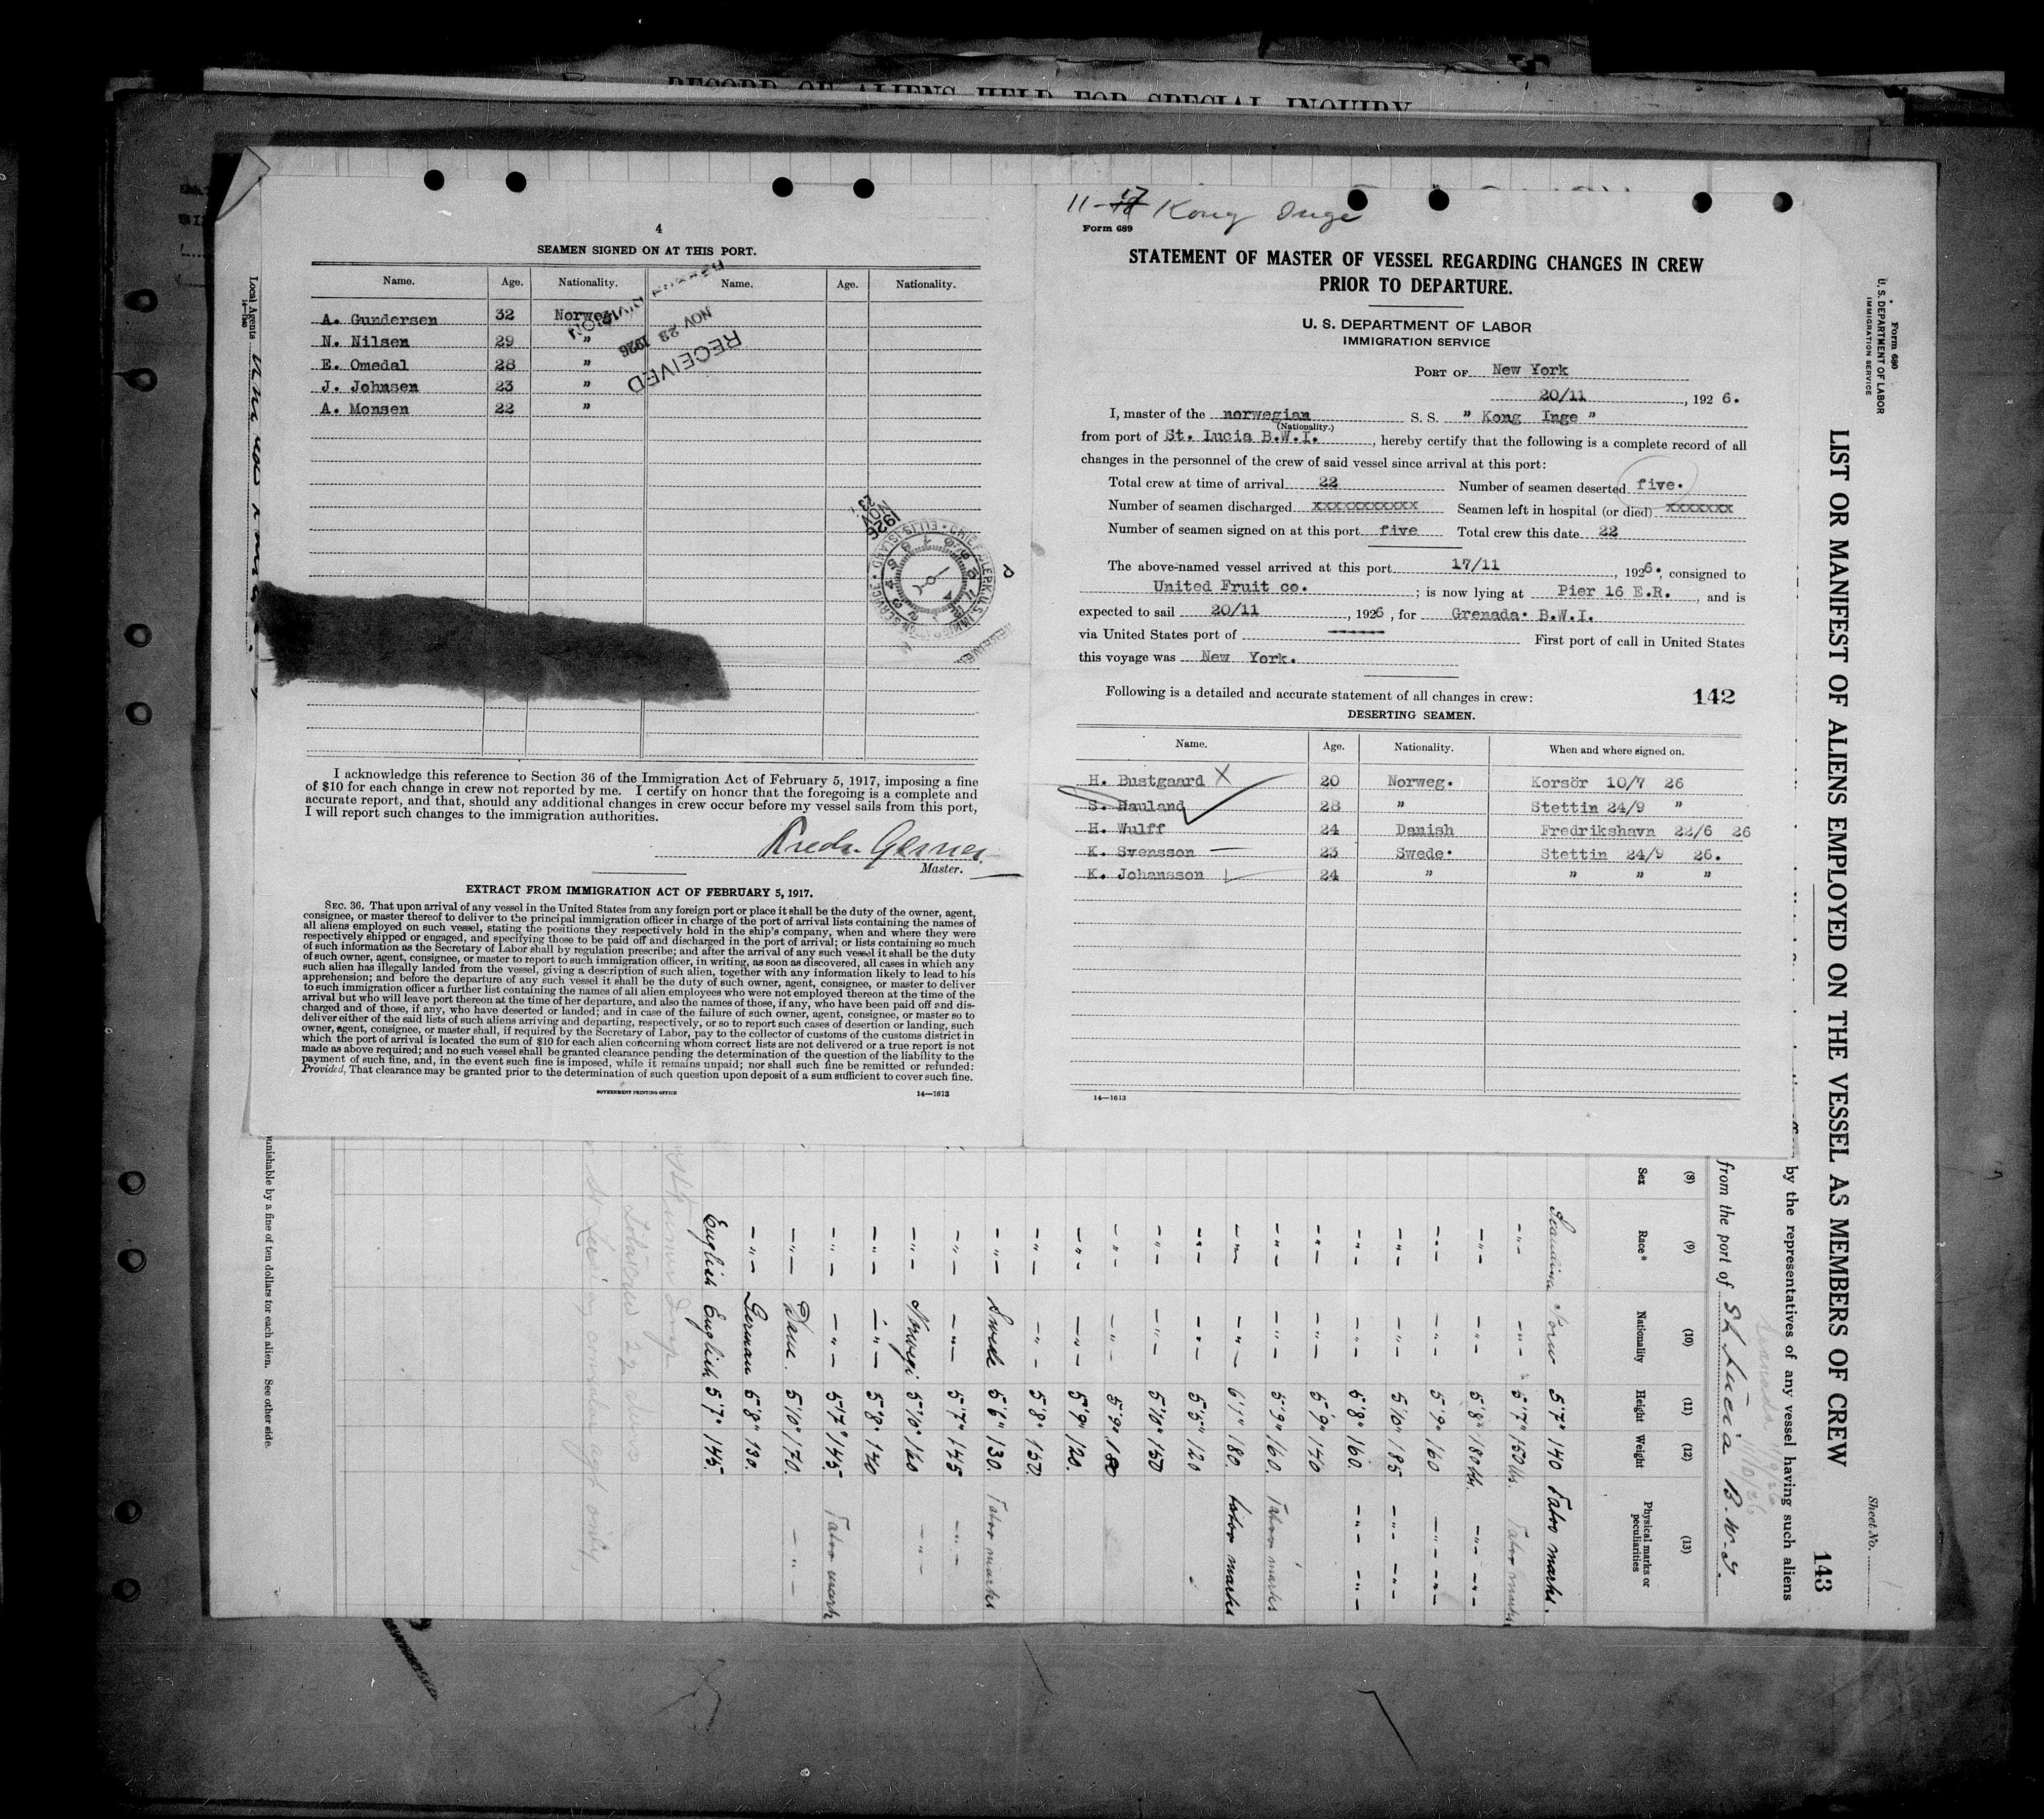 RECORD OF ALIENS HELD FOR SPECIAL INQUIRY
4
SEAMEN SIGNED ON AT THIS PORT.
Name. Age. Nationality. Name. Age. Nationality.
A. Gundersen 32 Norweg.
N. Nilsen 29 "
E. Omedal 28 "
J. Johnsen 23 "
A. Monsen 22 "
RECEIVED
NOV 23 1926
DIVISION
NOV 23
1926
CHIEF CLERK, U.S. IMMIGRATION SERVICE • ELLIS ISLAND
I acknowledge this reference to Section 36 of the Immigration Act of February 5, 1917, imposing a fine
of $10 for each change in crew not reported by me. I certify on honor that the foregoing is a complete and
accurate report, and that, should any additional changes in crew occur before my vessel sails from this port,
I will report such changes to the immigration authorities.
Master.
EXTRACT FROM IMMIGRATION ACT OF FEBRUARY 5, 1917.
SEC. 36. That upon arrival of any vessel in the United States from any foreign port or place it shall be the duty of the owner, agent,
consignee, or master thereof to deliver to the principal immigration officer in charge of the port of arrival lists containing the names of
all aliens employed on such vessel, stating the positions they respectively hold in the ship's company, when and where they were
respectively shipped or engaged, and specifying those to be paid off and discharged in the port of arrival; or lists containing so much
of such information as the Secretary of Labor shall by regulation prescribe; and after the arrival of any such vessel it shall be the duty
of such owner, agent, consignee, or master to report to such immigration officer, in writing, as soon as discovered, all cases in which any
such alien has illegally landed from the vessel, giving a description of such alien, together with any information likely to lead to his
apprehension; and before the departure of any such vessel it shall be the duty of such owner, agent, consignee, or master to deliver
to such immigration officer a further list containing the names of all alien employees who were not employed thereon at the time of the
arrival but who will leave port thereon at the time of her departure, and also the names of those, if any, who have been paid off and dis-
charged and of those, if any, who have deserted or landed; and in case of the failure of such owner, agent, consignee, or master so to
deliver either of the said lists of such aliens arriving and departing, respectively, or so to report such cases of desertion or landing, such
owner, agent, consignee, or master shall, if required by the Secretary of Labor, pay to the collector of customs of the customs district in
which the port of arrival is located the sum of $10 for each alien concerning whom correct lists are not delivered or a true report is not
made as above required; and no such vessel shall be granted clearance pending the determination of the question of the liability to the
payment of such fine, and, in the event such fine is imposed, while it remains unpaid; nor shall such fine be remitted or refunded:
Provided, That clearance may be granted prior to the determination of such question upon deposit of a sum sufficient to cover such fine.
GOVERNMENT PRINTING OFFICE 14—1613
11-17 Kong Inge
Form 689
STATEMENT OF MASTER OF VESSEL REGARDING CHANGES IN CREW
PRIOR TO DEPARTURE.
U. S. DEPARTMENT OF LABOR
IMMIGRATION SERVICE
PORT OF New York
20/11, 1926.
I, master of the norwegian S. S. " Kong Inge "
(Nationality.)
from port of St. Lucia B.W.I., hereby certify that the following is a complete record of all
changes in the personnel of the crew of said vessel since arrival at this port:
Total crew at time of arrival 22 Number of seamen deserted five.
Number of seamen discharged xxxxxxxxxxx Seamen left in hospital (or died) xxxxxxx
Number of seamen signed on at this port five Total crew this date 22
The above-named vessel arrived at this port 17/11, 1926., consigned to
United Fruit co. ; is now lying at Pier 16 E.R., and is
expected to sail 20/11, 1926, for Grenada. B.W.I.
via United States port of ------ First port of call in United States
this voyage was New York.
Following is a detailed and accurate statement of all changes in crew: 142
DESERTING SEAMEN.
Name. Age. Nationality. When and where signed on.
H. Bustgaard X 20 Norweg. Korsör 10/7 26
S. Hauland 28 " Stettin 24/9 "
H. Wulff 24 Danish Fredrikshavn 22/6 26
K. Svensson 23 Swede. Stettin 24/9 26.
K. Johansson 24 " " " "
14—1613
Form 680
U. S. DEPARTMENT OF LABOR
IMMIGRATION SERVICE
LIST OR MANIFEST OF ALIENS EMPLOYED ON THE VESSEL AS MEMBERS OF CREW
Sheet No.
143
by the representatives of any vessel having such aliens
from the port of St Lucia B.W.I.
(8) (9) (10) (11) (12) (13)
Sex Race* Nationality Height Weight Physical marks or peculiarities
Norw 5'7" 140 Tatoo marks.
-"- -"- 5'7" 150 lbs. Tatoo marks
-"- -"- 5'8" 180 lbs. -"- -"-
-"- -"- 5'9" 160 -"- -"-
-"- -"- 5'10" 185 -"- -"-
-"- -"- 5'8" 160. -"- -"-
-"- -"- 5'9" 140
-"- -"- 5'9" 160. Tatoo marks
-"- -"- 6'1" 180. tatoo marks
-"- -"- 5'5" 120
-"- -"- 5'10" 150
-"- -"- 5'9" 180
-"- -"- 5'9" 120.
-"- -"- 5'8" 150.
-"- Swede 5'6" 130. Tatoo marks
-"- -"- 5'7" 145 -"-
-"- Norwegi 5'10" 160 -"-
-"- -"- 5'8" 140
-"- -"- 5'7" 145. Tatoo mark
-"- Dane. 5'10" 170. -"-
-"- German 5'8" 130.
English English 5'7" 145.
Local Agents
14—1240
punishable by a fine of ten dollars for each alien. See other side.